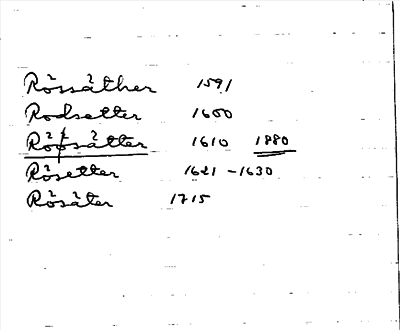 Rössäther 1591
Rodsetter 1600
Röfsätter 1610 1880
Rösetter 1621-1630
Rösäter 1715